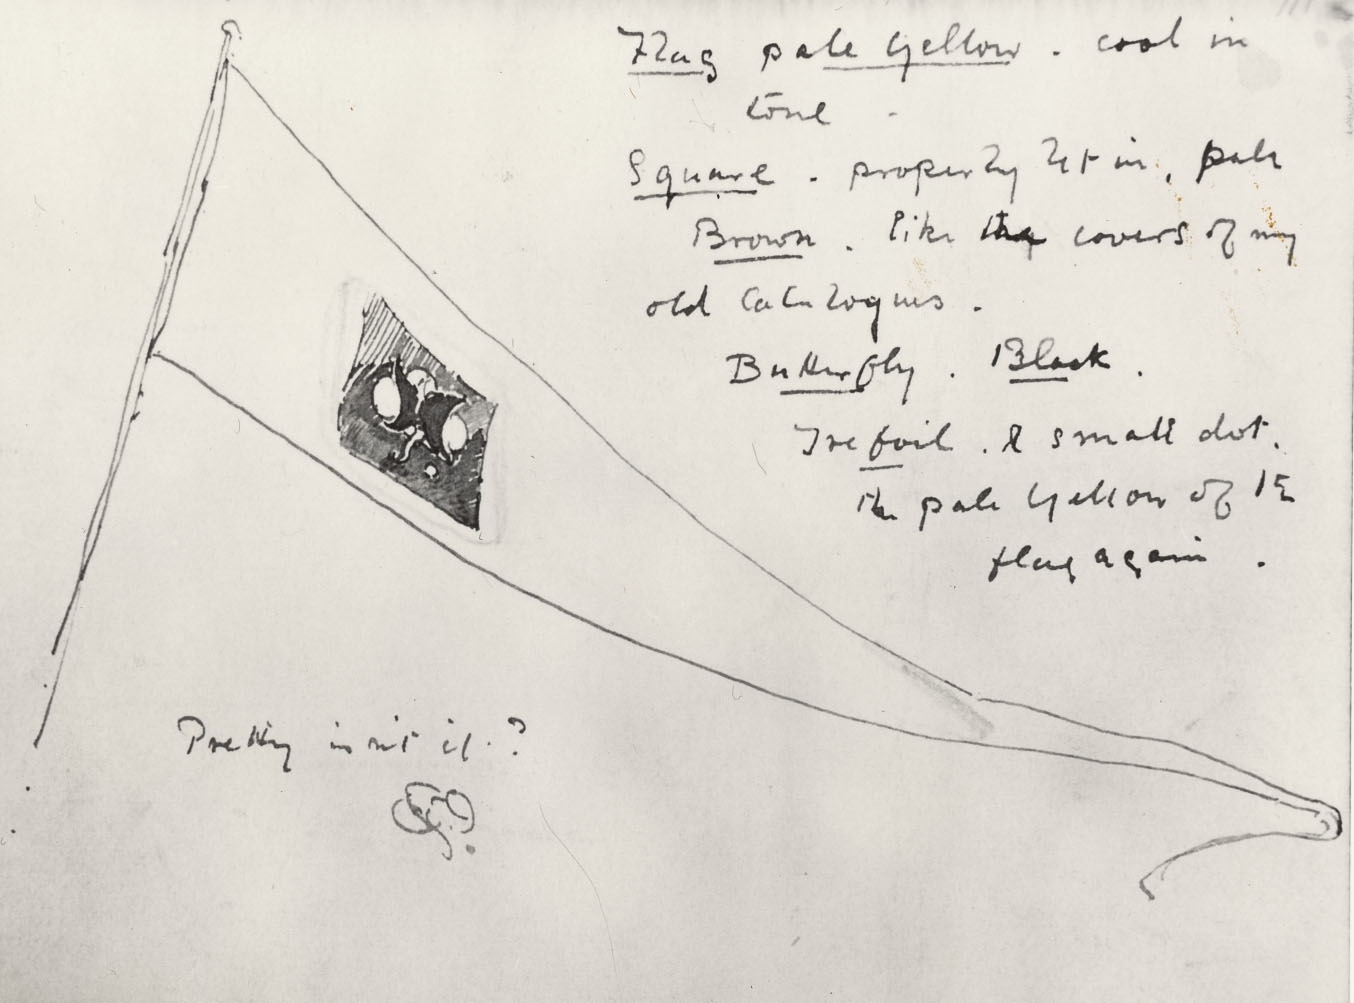 Flag pale Yellow. cool in
tone.
Square. properly let in, pale
Brown. like the covers of my
old Catalogues.
Butterfly. Black.
Trefoil. & small dot.
the pale Yellow of the
flag again.
Pretty isn't it.?